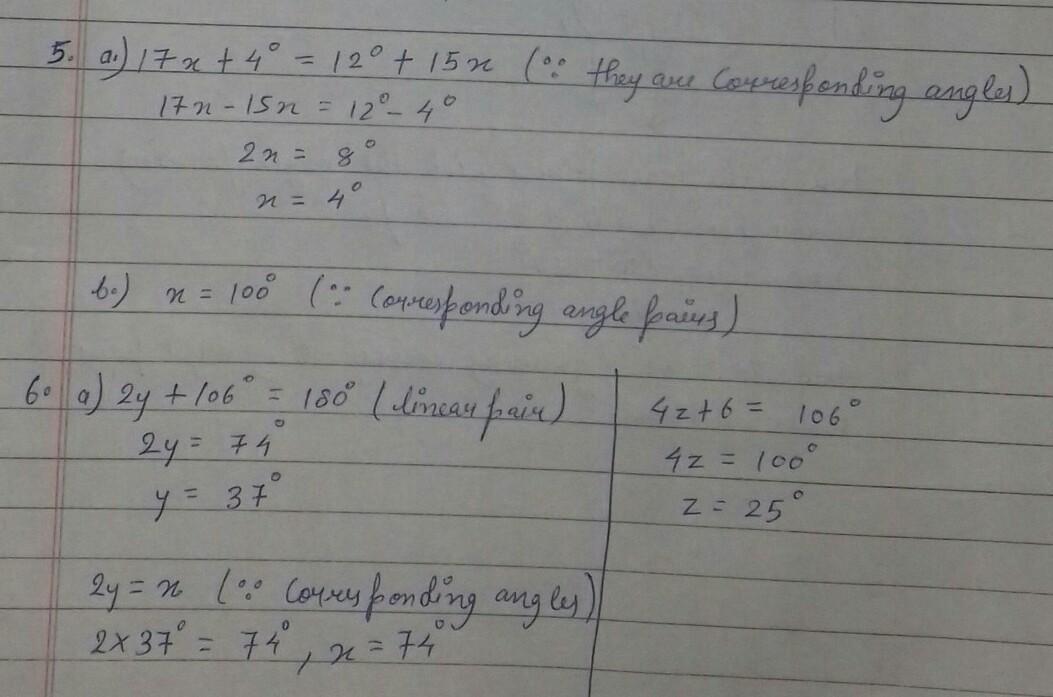 5. a.) 17x + 4° = 12° + 15x (∵ they are corresponding angles)
17x - 15x = 12° - 4°
2x = 8°
x = 4°
b.) x = 100° (∵ Corresponding angle pairs)
6. a) 2y + 106° = 180° (linear pair)
2y = 74°
y = 37°
2y = x (∵ Corresponding angles)
2 × 37° = 74°, x = 74°
4z + 6 = 106°
4z = 100°
z = 25°